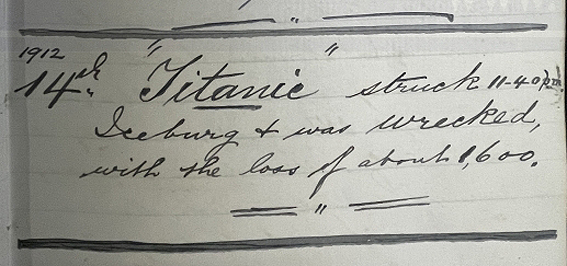 "
1912 " "
14th Titanic struck 11-40 p.m.
Iceburg & was wrecked,
with the loss of about 1,600.
"